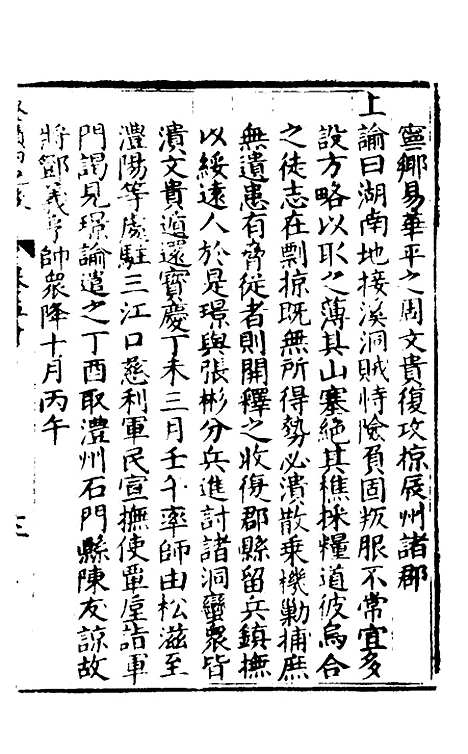 寧鄉易華平之周文貴復攻掠辰州諸郡
上諭曰湖南地接溪洞賊恃險負固叛服不常宜多
設方略以取之薄其山寨絶其樵採糧道彼烏合
之徒志在剽掠既無所得勢必潰散乗機勦捕庶
無遺患有脅從者則開釋之收復郡縣留兵鎮撫
以綏遠人於是璟與張彬分兵進討諸洞蠻衆皆
潰文貴遁還寶慶丁未三月壬午率師由松滋至
澧陽等處駐三江口慈利軍民宣撫使覃垕詣軍
門謁見璟諭遣之丁酉取澧州石門縣陳友諒故
將鄧義亨帥衆降十月丙午
三